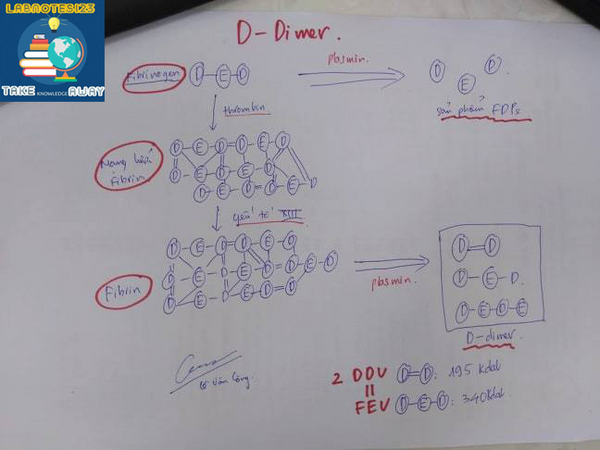 LABNOTES123
TAKE KNOWLEDGE AWAY
D-Dimer.
Fibrinogen D-E-D plasmin. D D.
E
thrombin sản phẩm FDPs
D E D D E D
Mạng lưới fibrin
D E D E D
D E D D E D
yếu tố XIII
D E D D E D
D=D
D E D E D D E D
D-E-D.
Fibrin plasmin.
D E D E D D
D-E-D-E
D-dimer
2 DDU D=D: 195 Kdal
=
FEU D-E-D: 340Kdal